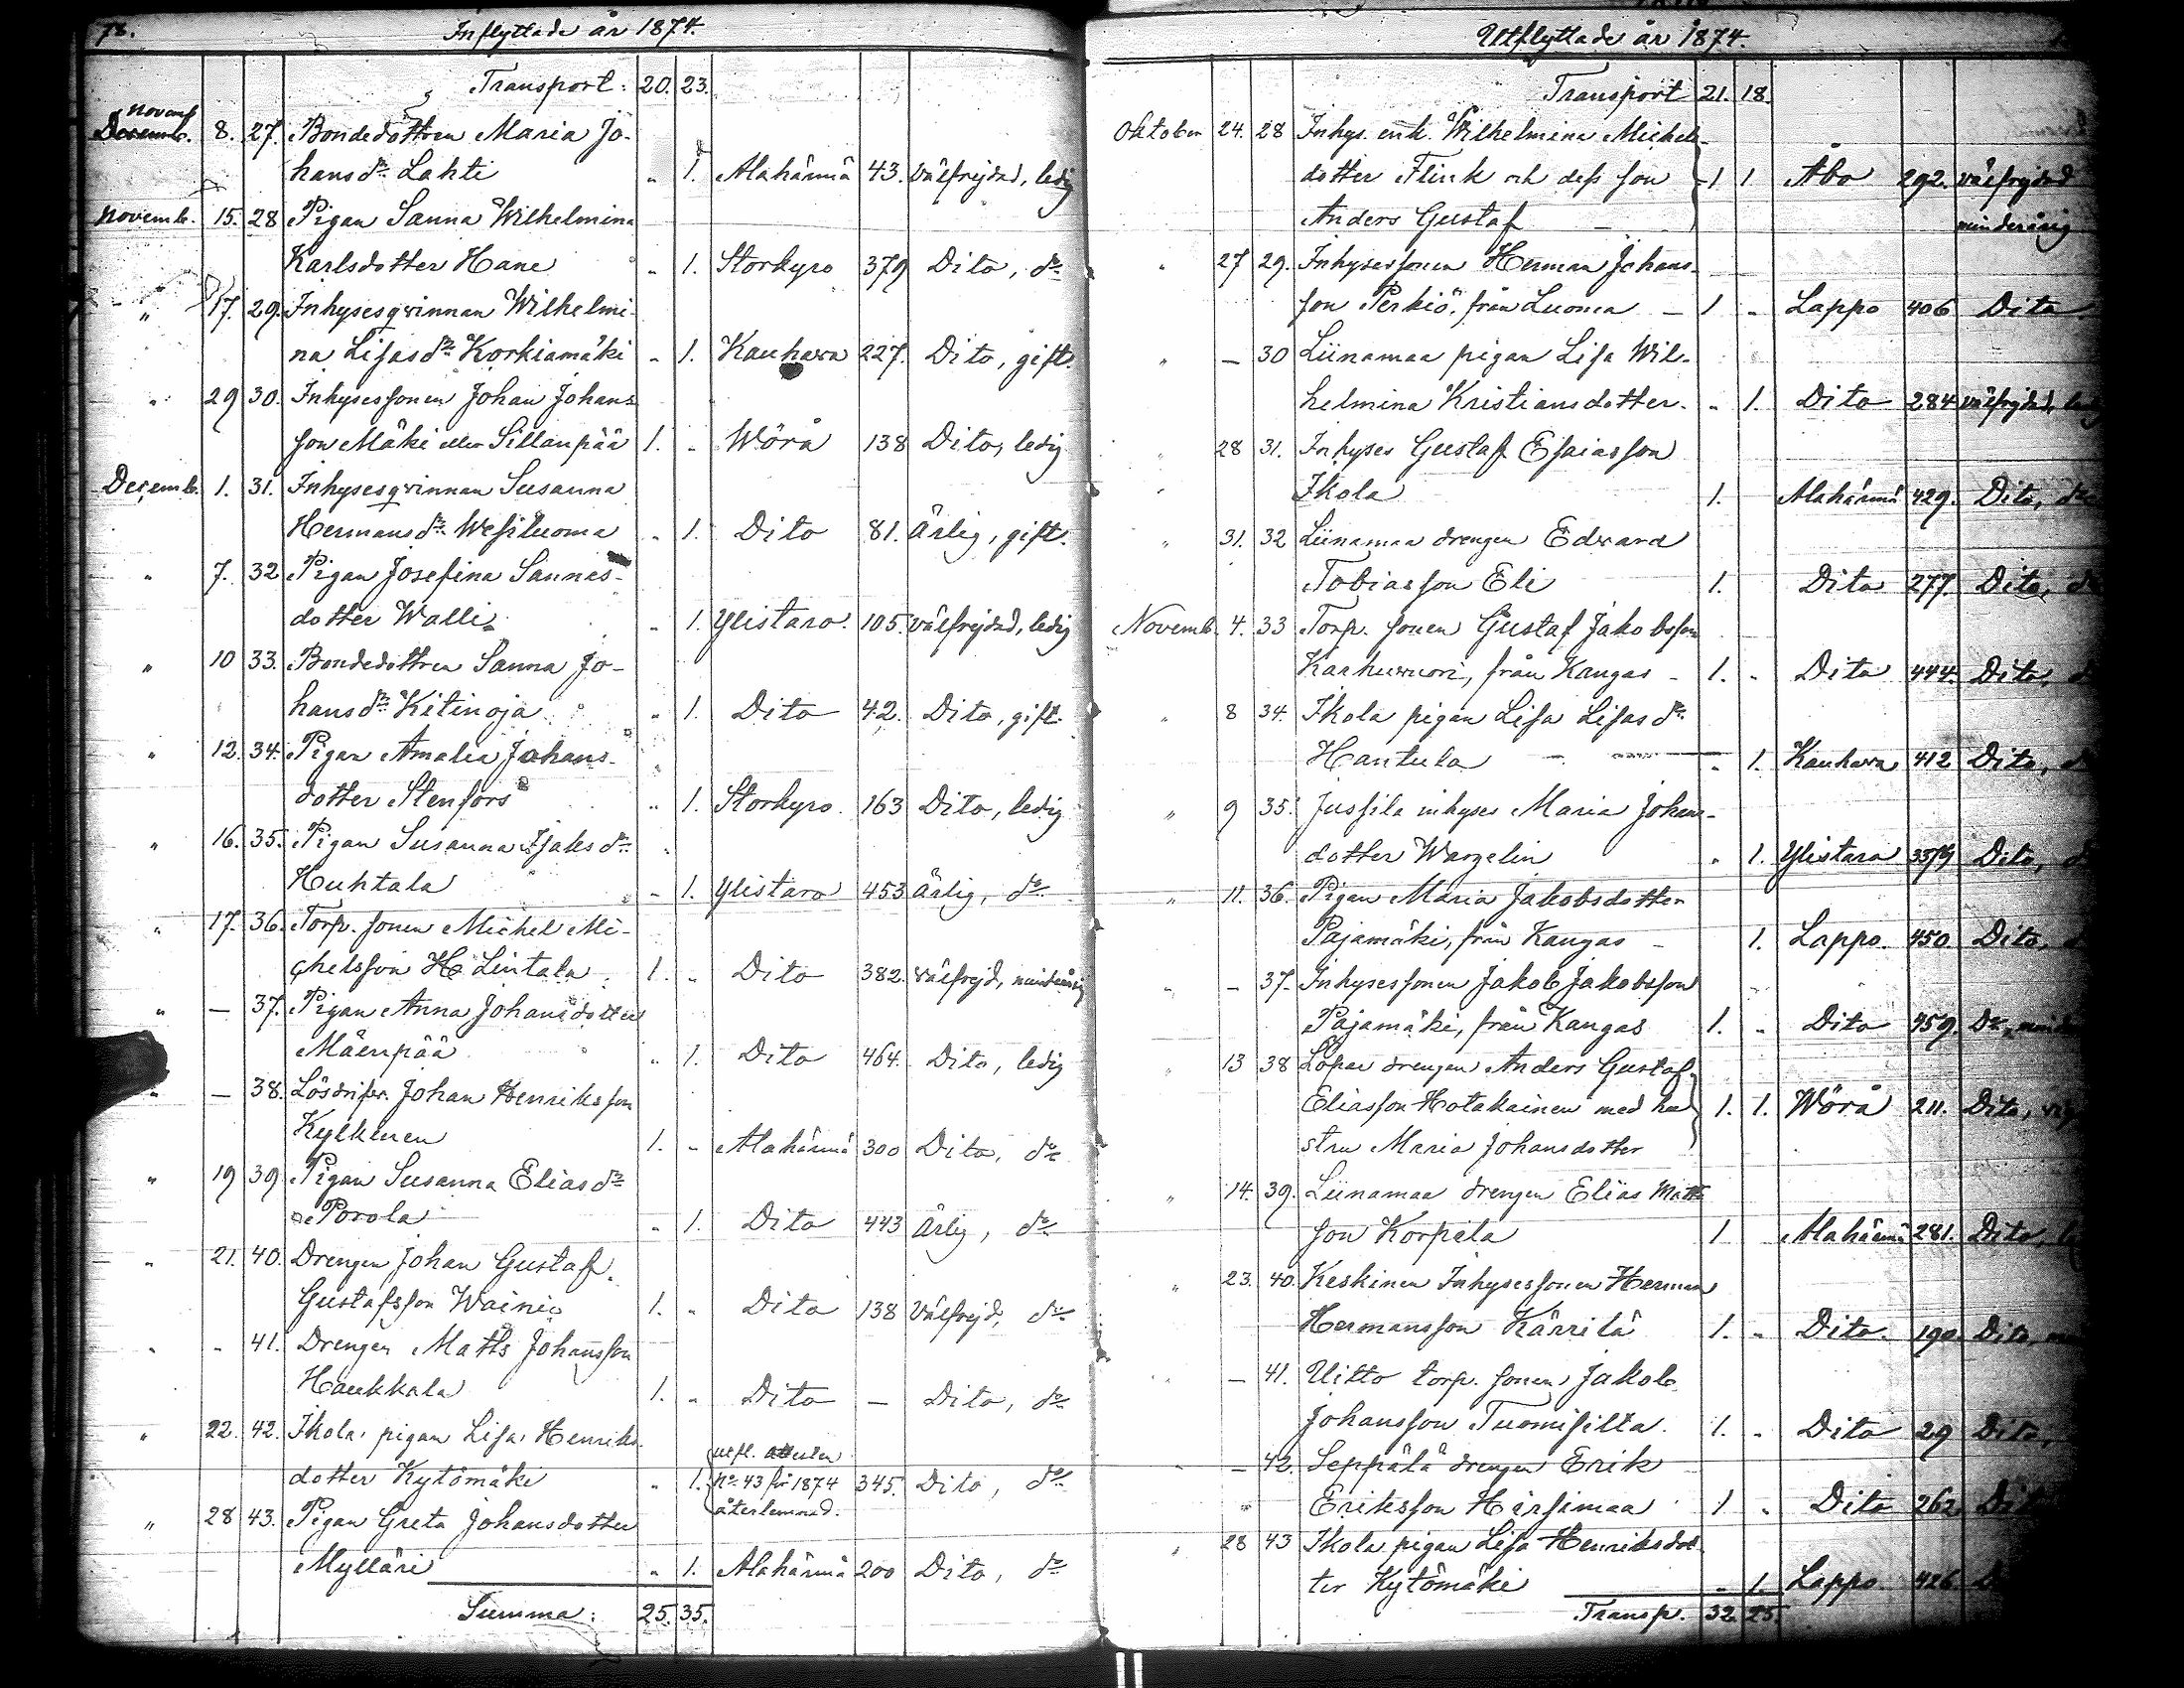 78.
Inflyttade år 1874.
Transport: 20. 23.
Novemb
Decemb. 8. 27. Bondedottren Maria Jo-
hansdr Lahti " 1. Alahärmä 43. välfrejdad, ledig
Novemb. 15. 28 Pigan Sanna Wilhelmina
Karlsdotter Hane " 1. Storkyro 379 Dito, do
" 17. 29. Inhysesqvinnan Wilhelmi-
na Lisasdr Korkiamäki " 1. Kauhava 227. Dito, gift.
" 29 30. Inhysessonen Johan Johans-
son Mäki eller Sillanpää 1. " Wörå 138 Dito, ledig
Decemb. 1. 31. Inhysesqvinnan Susanna
Hermansdr Wesiluoma " 1. Dito 81. Ärlig, gift.
" 7. 32 Pigan Josefina Sannas-
dotter Walli " 1. Ylistaro 105. välfrejdad, ledig
" 10 33. Bondedottren Sanna Jo-
hansdr Kitinoja " 1. Dito 42. Dito, gift.
" 12. 34. Pigan Amalia Johans-
dotter Stenfors " 1. Storkyro 163 Dito, ledig
" 16. 35. Pigan Susanna Isaksdr
Huhtala " 1. Ylistaro 453 Ärlig, do
" 17. 36. Torp. sonen Michel Mi-
chelsson H Lintala 1. " Dito 382. välfrejd, minderårig
" — 37. Pigan Anna Johansdotter
Mäenpää " 1. Dito 464. Dito, ledig
" — 38. Lösdrifv. Johan Henriksson
Kylkinen 1. " Alahärmä 300 Dito, do
" 19 39 Pigan Susanna Eliasdr
Porola " 1. Dito 443 Ärlig, do
" 21. 40. Drengen Johan Gustaf
Gustafsson Wainio 1. " Dito 138 Välfrejd, do
" " 41. Drengen Matts Johansson
Haukkala 1. " Dito — Dito, do
" 22. 42. Ikola pigan Lisa Henriks-
dotter Kytömäki " 1. No 43 för 1874 345. Dito, do
återlemnad.
" 28 43. Pigan Greta Johansdotter
Mylläri " 1. Alahärmä 200 Dito, do
Summa: 25. 35.
Utflyttade år 1874.
Transport 21. 18.
Oktober 24. 28 Inhys. enk. Wilhelmina Michels-
dotter Flink och dess son 1 1 Åbo 292. välfrejdad
Anders Gustaf — minderårig
" 27 29. Inhysessonen Herman Johans-
son Perkiö, från Luoma — 1 " Lappo 406 Dito
" — 30 Liinamaa pigan Lisa Wil-
helmina Kristiansdotter. " 1. Dito 284 välfrejdad, ledig
" 28 31. Inhyses Gustaf Esaiasson
Ikola 1. Alahärmä 429. Dito, do
" 31. 32 Liinamaa drengen Edvard
Tobiasson Eli 1. Dito 277. Dito,
Novemb. 4. 33 Torp. sonen Gustaf Jakobsson
Karhuvuori, från Kangas - 1. " Dito 444. Dito,
" 8 34. Ikola pigan Lisa Lisasdr
Hantula — " 1. Kauhava 412 Dito,
" 9 35. Jussila inhyses Maria Johans-
dotter Wargelin " 1. Ylistaro Dito,
" 11. 36. Pigan Maria Jakobsdotter
Pajamäki, från Kangas - 1. Lappo. 450. Dito,
" — 37. Inhysessonen Jakob Jakobsson
Pajamäki, från Kangas 1. " Dito 459. Do,
" 13 38 Löpar drengen Anders Gustaf
Eliasson Hotakainen med hu- 1. 1. Wörå 211. Dito,
stru Maria Johansdotter
" 14. 39. Liinamaa drengen Elias Matts-
son Korpela 1 Alahärmä 281. Dito,
" 23. 40. Keskinen Inhysessonen Herman
Hermansson Kärrilä 1. " Dito. 190. Dito,
" — 41. Uitto torp. sonen Jakob
Johansson Tuomisilta. 1. " Dito 29 Dito,
" — 42. Seppälä drengen Erik
" Eriksson Hirsimaa 1 " Dito 262
" 28 43 Ikola pigan Lisa Henriksdot-
ter Kytömäki " 1. Lappo 426
Transp. 32. 25.